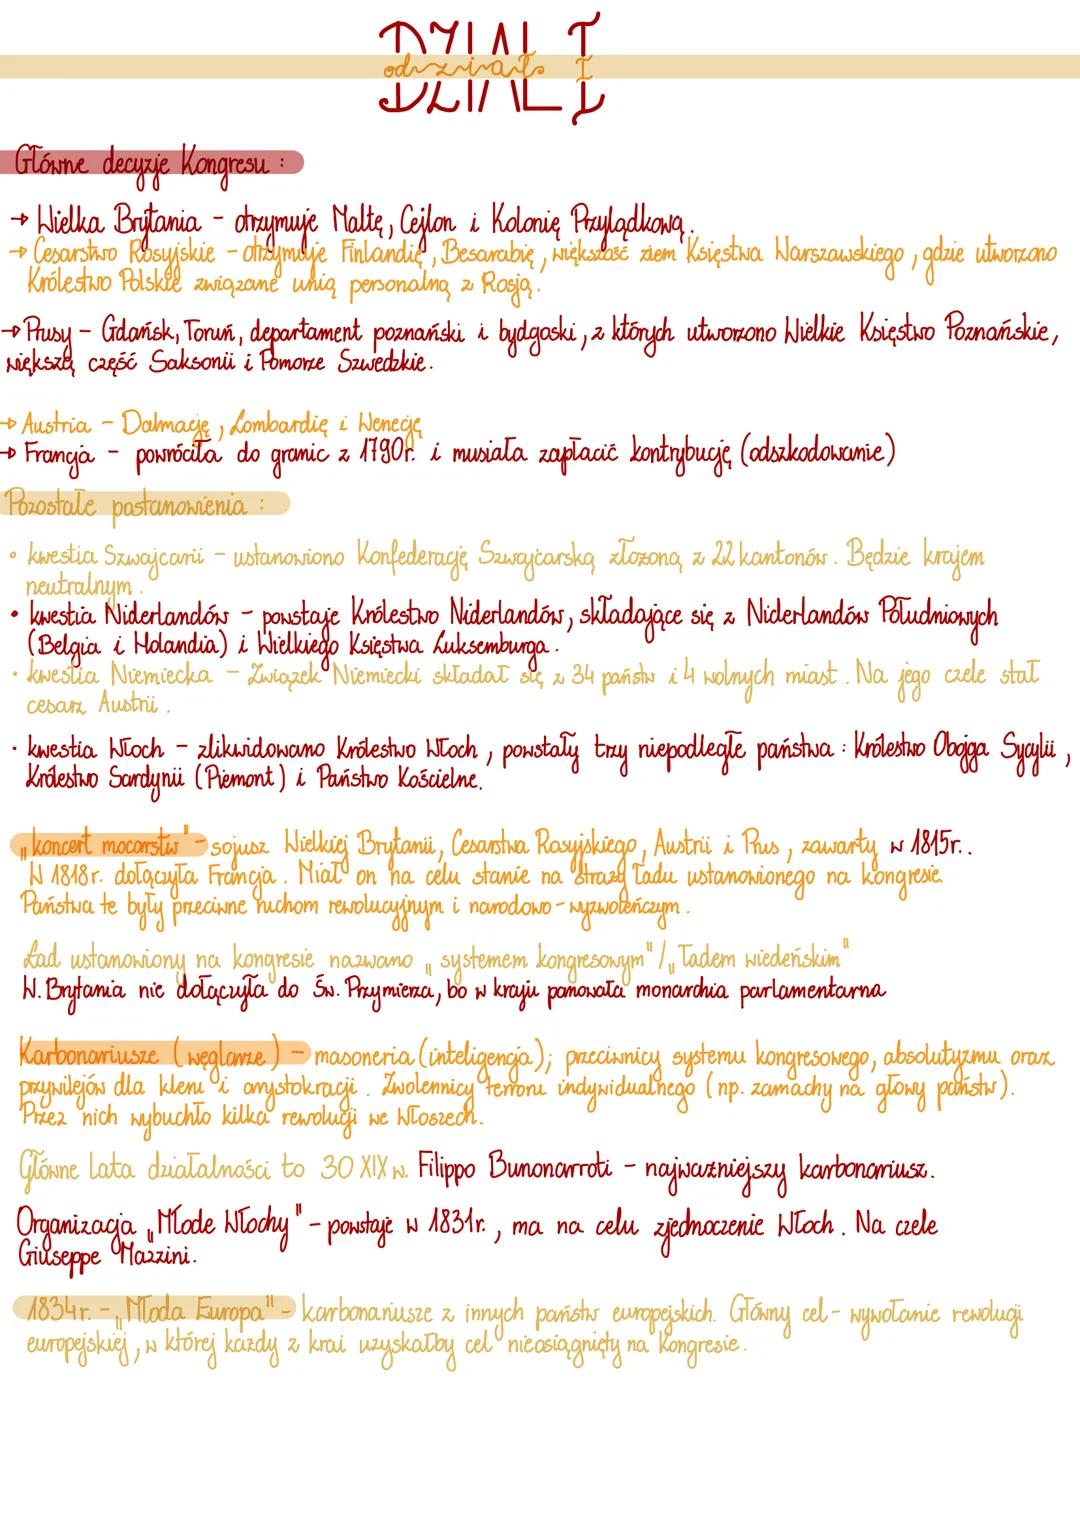 DZIAŁ I
odziału I
Główne decyzje Kongresu :
→ Wielka Brytania – otrzymuje Maltę, Cejlon i Kolonię Przylądkową.
→ Cesarstwo Rosyjskie – otrzymuje Finlandię, Besarabię, większość ziem Księstwa Warszawskiego, gdzie utworzono
Królestwo Polskie związane unią personalną z Rosją.
→ Prusy – Gdańsk, Toruń, departament poznański i bydgoski, z których utworzono Wielkie Księstwo Poznańskie,
większą część Saksonii i Pomorze Szwedzkie.
→ Austria – Dalmację, Lombardię i Wenecję
→ Francja – powróciła do granic z 1790r. i musiała zapłacić kontrybucję (odszkodowanie)
Pozostałe postanowienia :
• kwestia Szwajcarii – ustanowiono Konfederację Szwajcarską złożoną z 22 kantonów. Będzie krajem
neutralnym.
• kwestia Niderlandów – powstaje Królestwo Niderlandów, składające się z Niderlandów Południowych
(Belgia i Holandia) i Wielkiego Księstwa Luksemburga.
• kwestia Niemiecka – Związek Niemiecki składał się z 34 państw i 4 wolnych miast. Na jego czele stał
cesarz Austrii.
• kwestia Włoch – zlikwidowano Królestwo Włoch, powstały trzy niepodległe państwa : Królestwo Obojga Sycylii,
Królestwo Sardynii (Piemont) i Państwo Kościelne.
„koncert mocarstw" – sojusz Wielkiej Brytanii, Cesarstwa Rosyjskiego, Austrii i Prus, zawarty w 1815r..
W 1818r. dołączyła Francja. Miał on na celu stanie na straży ładu ustanowionego na kongresie.
Państwa te były przeciwne ruchom rewolucyjnym i narodowo-wyzwoleńczym.
Ład ustanowiony na kongresie nazwano „systemem kongresowym"/„ładem wiedeńskim"
W. Brytania nie dołączyła do Św. Przymierza, bo w kraju panowała monarchia parlamentarna
Karbonariusze (węglarze) – masoneria (inteligencja); przeciwnicy systemu kongresowego, absolutyzmu oraz
przywilejów dla kleru i arystokracji. Zwolennicy terroru indywidualnego (np. zamachy na głowy państw).
Przez nich wybuchło kilka rewolucji we Włoszech.
Główne lata działalności to 30 XIX w. Filippo Bunonarroti – najważniejszy karbonariusz.
Organizacja „Młode Włochy" – powstaje w 1831r., ma na celu zjednoczenie Włoch. Na czele
Giuseppe Mazzini.
1834r. – „Młoda Europa" – karbonariusze z innych państw europejskich. Główny cel – wywołanie rewolucji
europejskiej, w której każdy z krai uzyskałby cel nieosiągnięty na Kongresie.